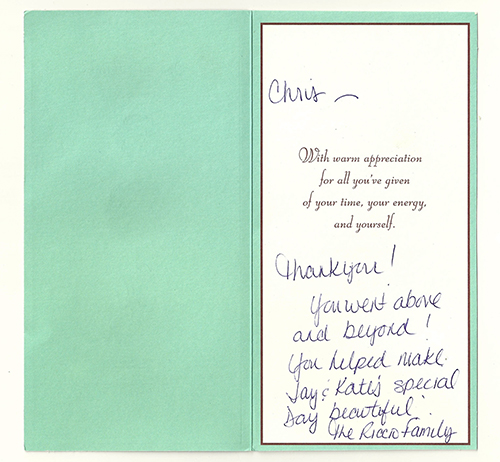 Chris –
With warm appreciation
for all you've given
of your time, your energy,
and yourself.
Thankyou!
You went above
and beyond!
You helped make
Jay & Kati's special
Day beautiful.
The Riccio Family